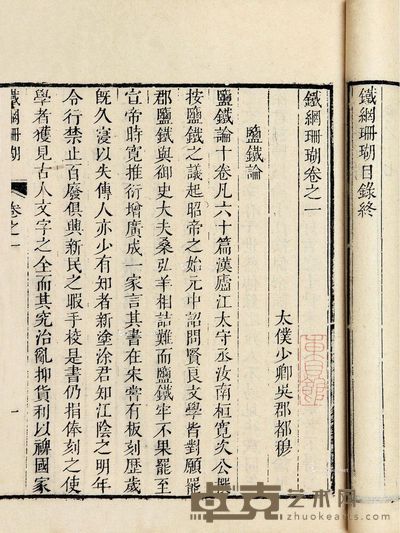 鐵網珊瑚目錄終
鐵網珊瑚卷之一
太僕少卿吳郡都穆
鹽鐵論
鹽鐵論十卷凡六十篇漢廬江太守丞汝南桓寬次公撰
按鹽鐵之議起昭帝之始元中詔問賢良文學皆對願罷
郡鹽鐵與御史大夫桑弘羊相詰難而鹽鐵牢不果罷至
宣帝時寬推衍增廣成一家言其書在宋嘗有板刻歷歲
既久寖以失傳人亦少有知者新塗涂君知江陰之明年
令行禁止百廢俱興新民之暇手校是書仍捐俸刻之使
學者獲見古人文字之全而其究治亂抑貨利以裨國家
鐵網珊瑚
卷之一
一
卓克艺术网
zhuokearts.com